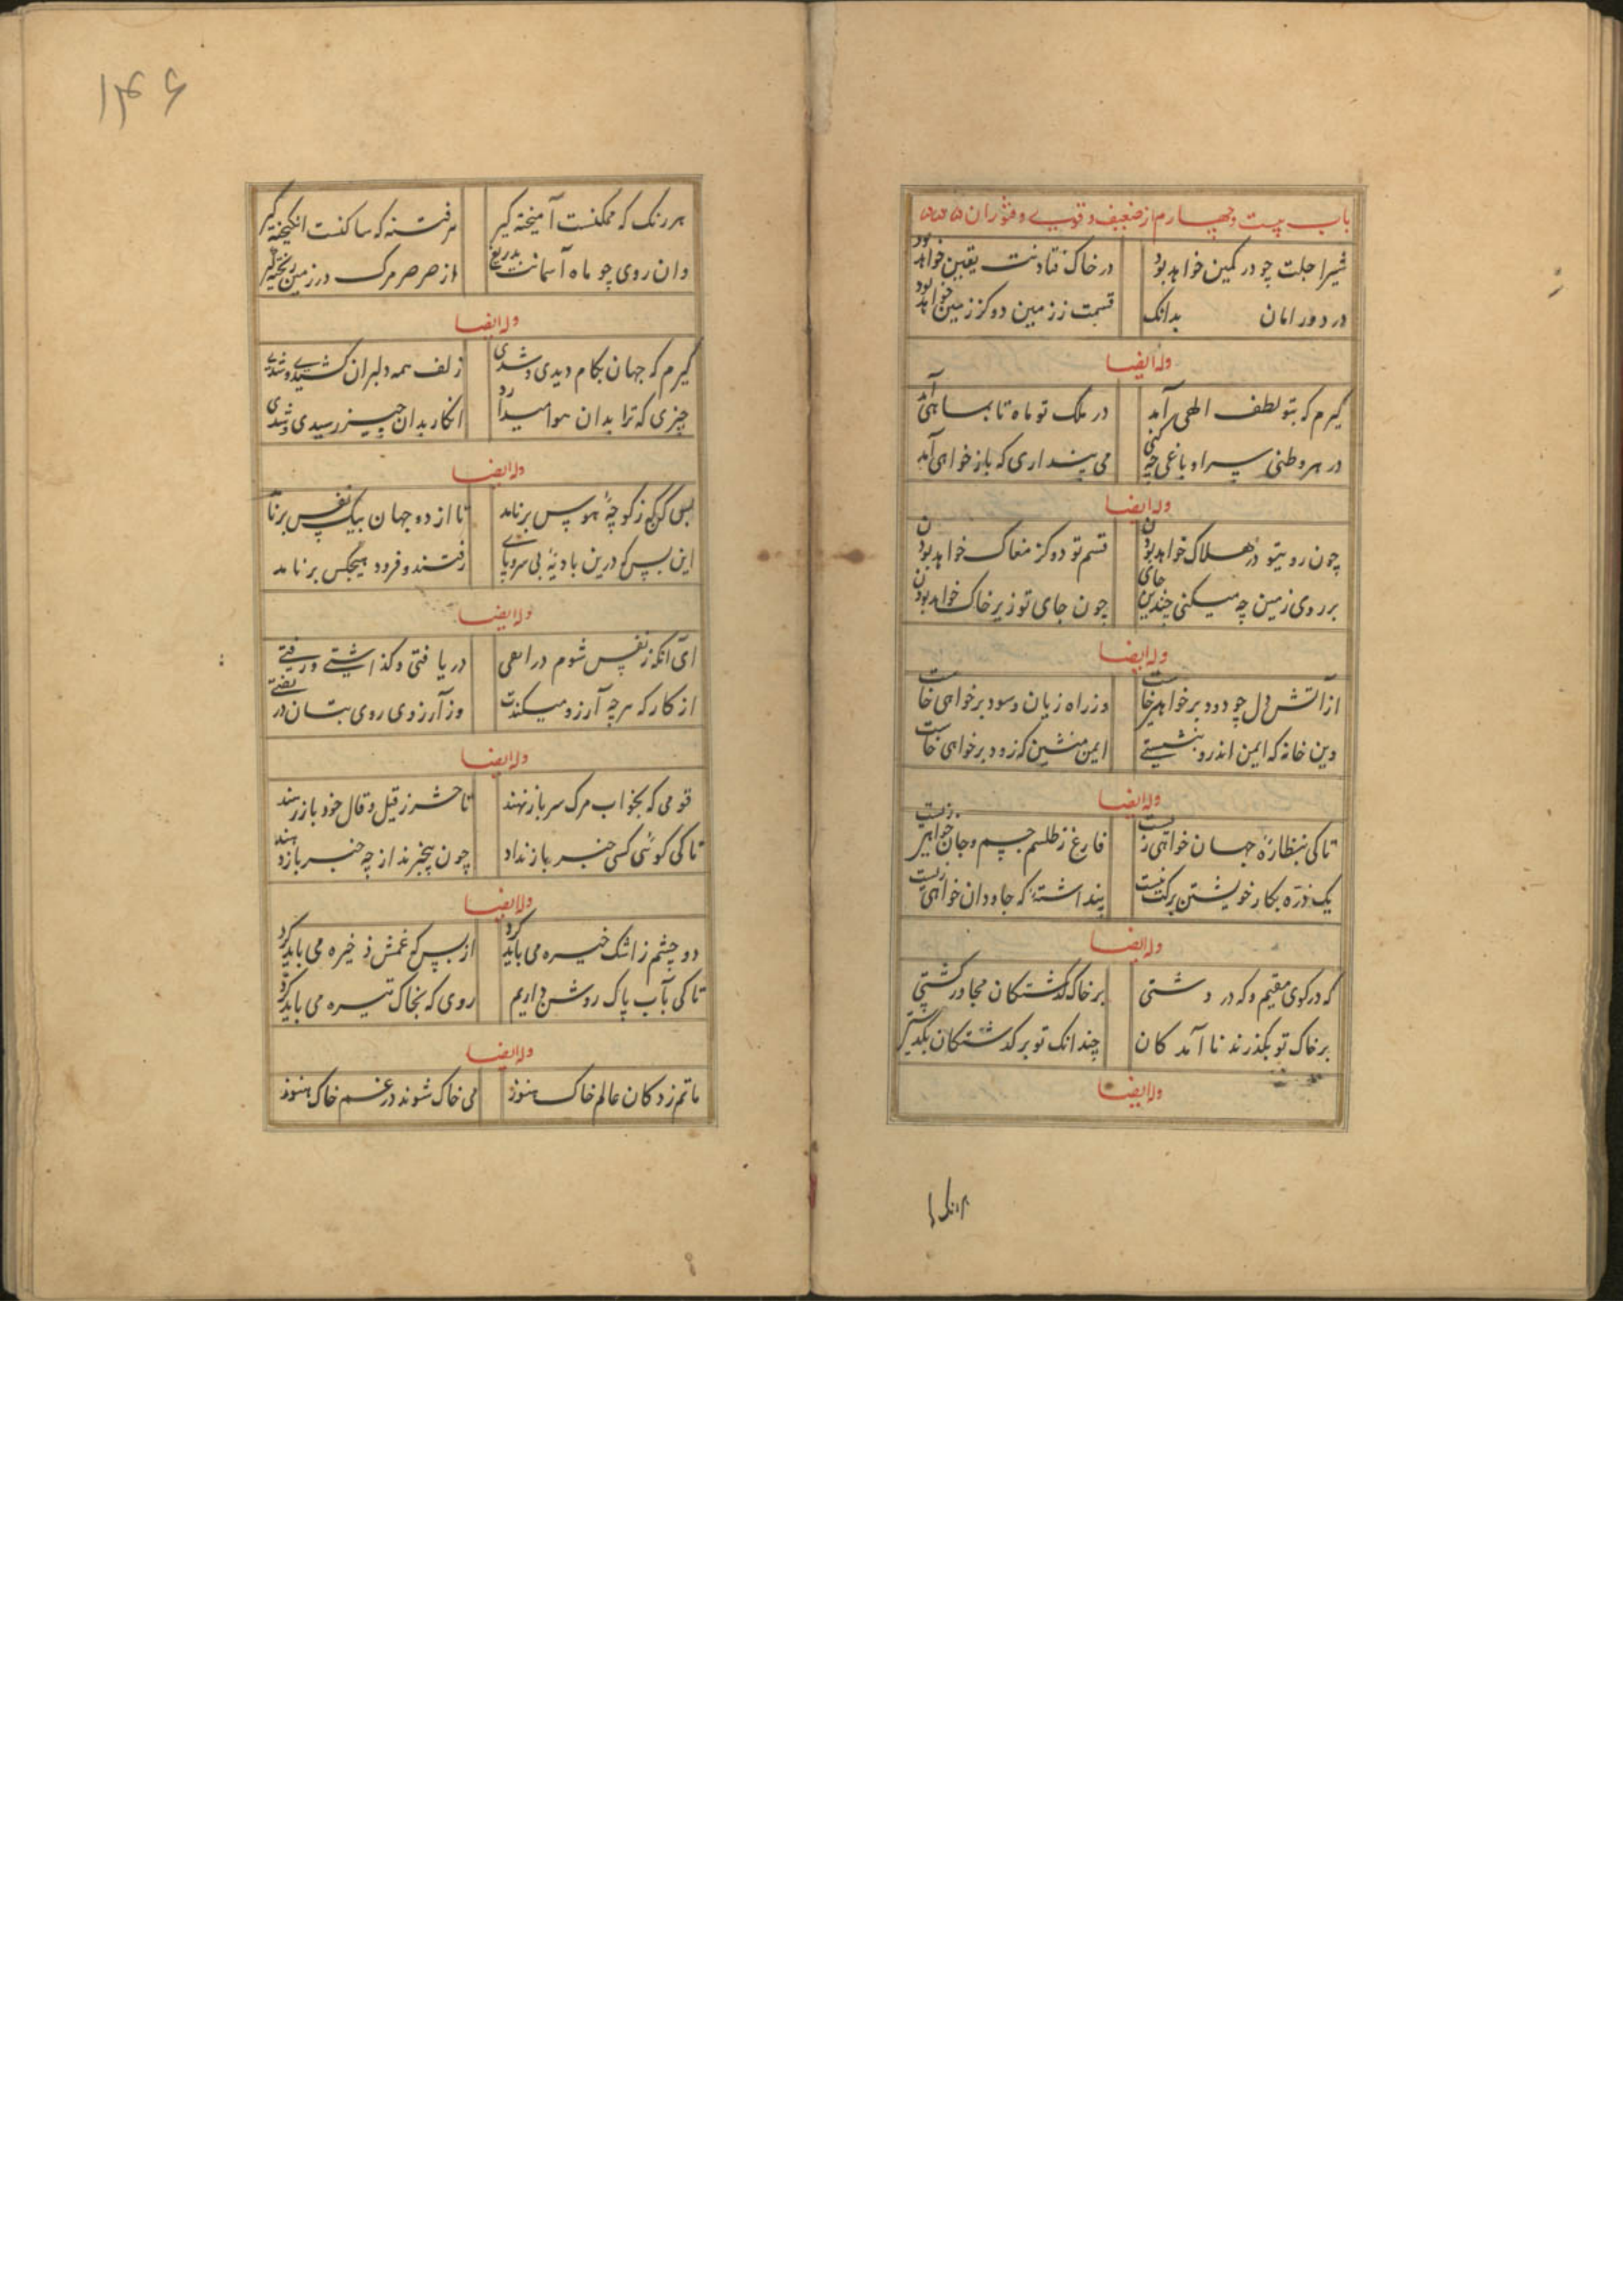 باب بیست و چهارم از ضعیف و قویے و فتوران
شیر اجلت چو در کمین خواهد بود در خاک فتادنت یقین خواهد بود
در دور امان بدانک قسمت ز زمین دو کز زمین خواهد بود
وله ایضا
کیرم که بتو لطف الهی آمد در ملک تو ماه تا بماهی آمد
در هر وطنی سرا و باغی چه کنی می پنداری که باز خواهی آمد
وله ایضا
چون رو بتو در هلاک خواهد بودن قسم تو دو کز مغاک خواهد بودن
بر روی زمین چه میکنی چندین جای چون جای تو زیر خاک خواهد بودن
وله ایضا
از آتش دل چو دود برخواهی خاست وز راه زیان و سود برخواهی خاست
وین خانه که ایمن اندرو بنشستے ایمن منشین که زود برخواهی خاست
وله ایضا
تا کی بنظارهٔ جهان خواهی زیست فارغ ز طلسم جسم و جان خواهی زیست
یک ذره بکار خویشتن برکت نیست پنداشتهٔ که جاودان خواهی زیست
وله ایضا
که در کوی مقیم و که در دشتی بر خاک گذشتکان مجاور کشتی
بر خاک تو بکذرند نا آمدکان چندانک تو بر کذشتکان بکذشتی
وله ایضا
هر رنک
۱۴۶
هر رنک که ممکنست آمیخته کیر هر فتنه که ساکنست انکیخته کیر
وان روی چو ماه آسمانت بدریغ از صرصر مرک در زمین ریخته کیر
وله ایضا
کیرم که جهان بکام دیدی و شدی زلف همه دلبران کشیدے و شدے
چیزی که ترا بدان هوا میدارد انکار بدان چیز رسیدی و شدی
وله ایضا
بس کس که ز کوچهٔ هوس برنامد تا از دو جهان بیک نفس برنامد
این بس که درین بادیهٔ بی سر و پاے رفتند و فرود هیچکس برنامد
وله ایضا
ای آنکه ز نفس شوم در دریا فتی و کذاشتے و رفتے
از کار که هرچه آرزو میکندت وز آرزوی روی بتان در
وله ایضا
قومی که بخواب مرک سر باز نهند تا حشر ز قیل و قال خود باز رهند
تا کی کوئی کسی خبر باز نداد چون بیخبرند از چه خبر باز دهند
وله ایضا
دو چشم ز اشک خیره می باید کرد از بس که غمش ذخیره می باید کرد
تا کی بآب پاک روشن داریم روی که بخاک تیره می باید کرد
وله ایضا
ماتم زدکان عالم خاک هنوز می خاک شوند در غم خاک هنوز